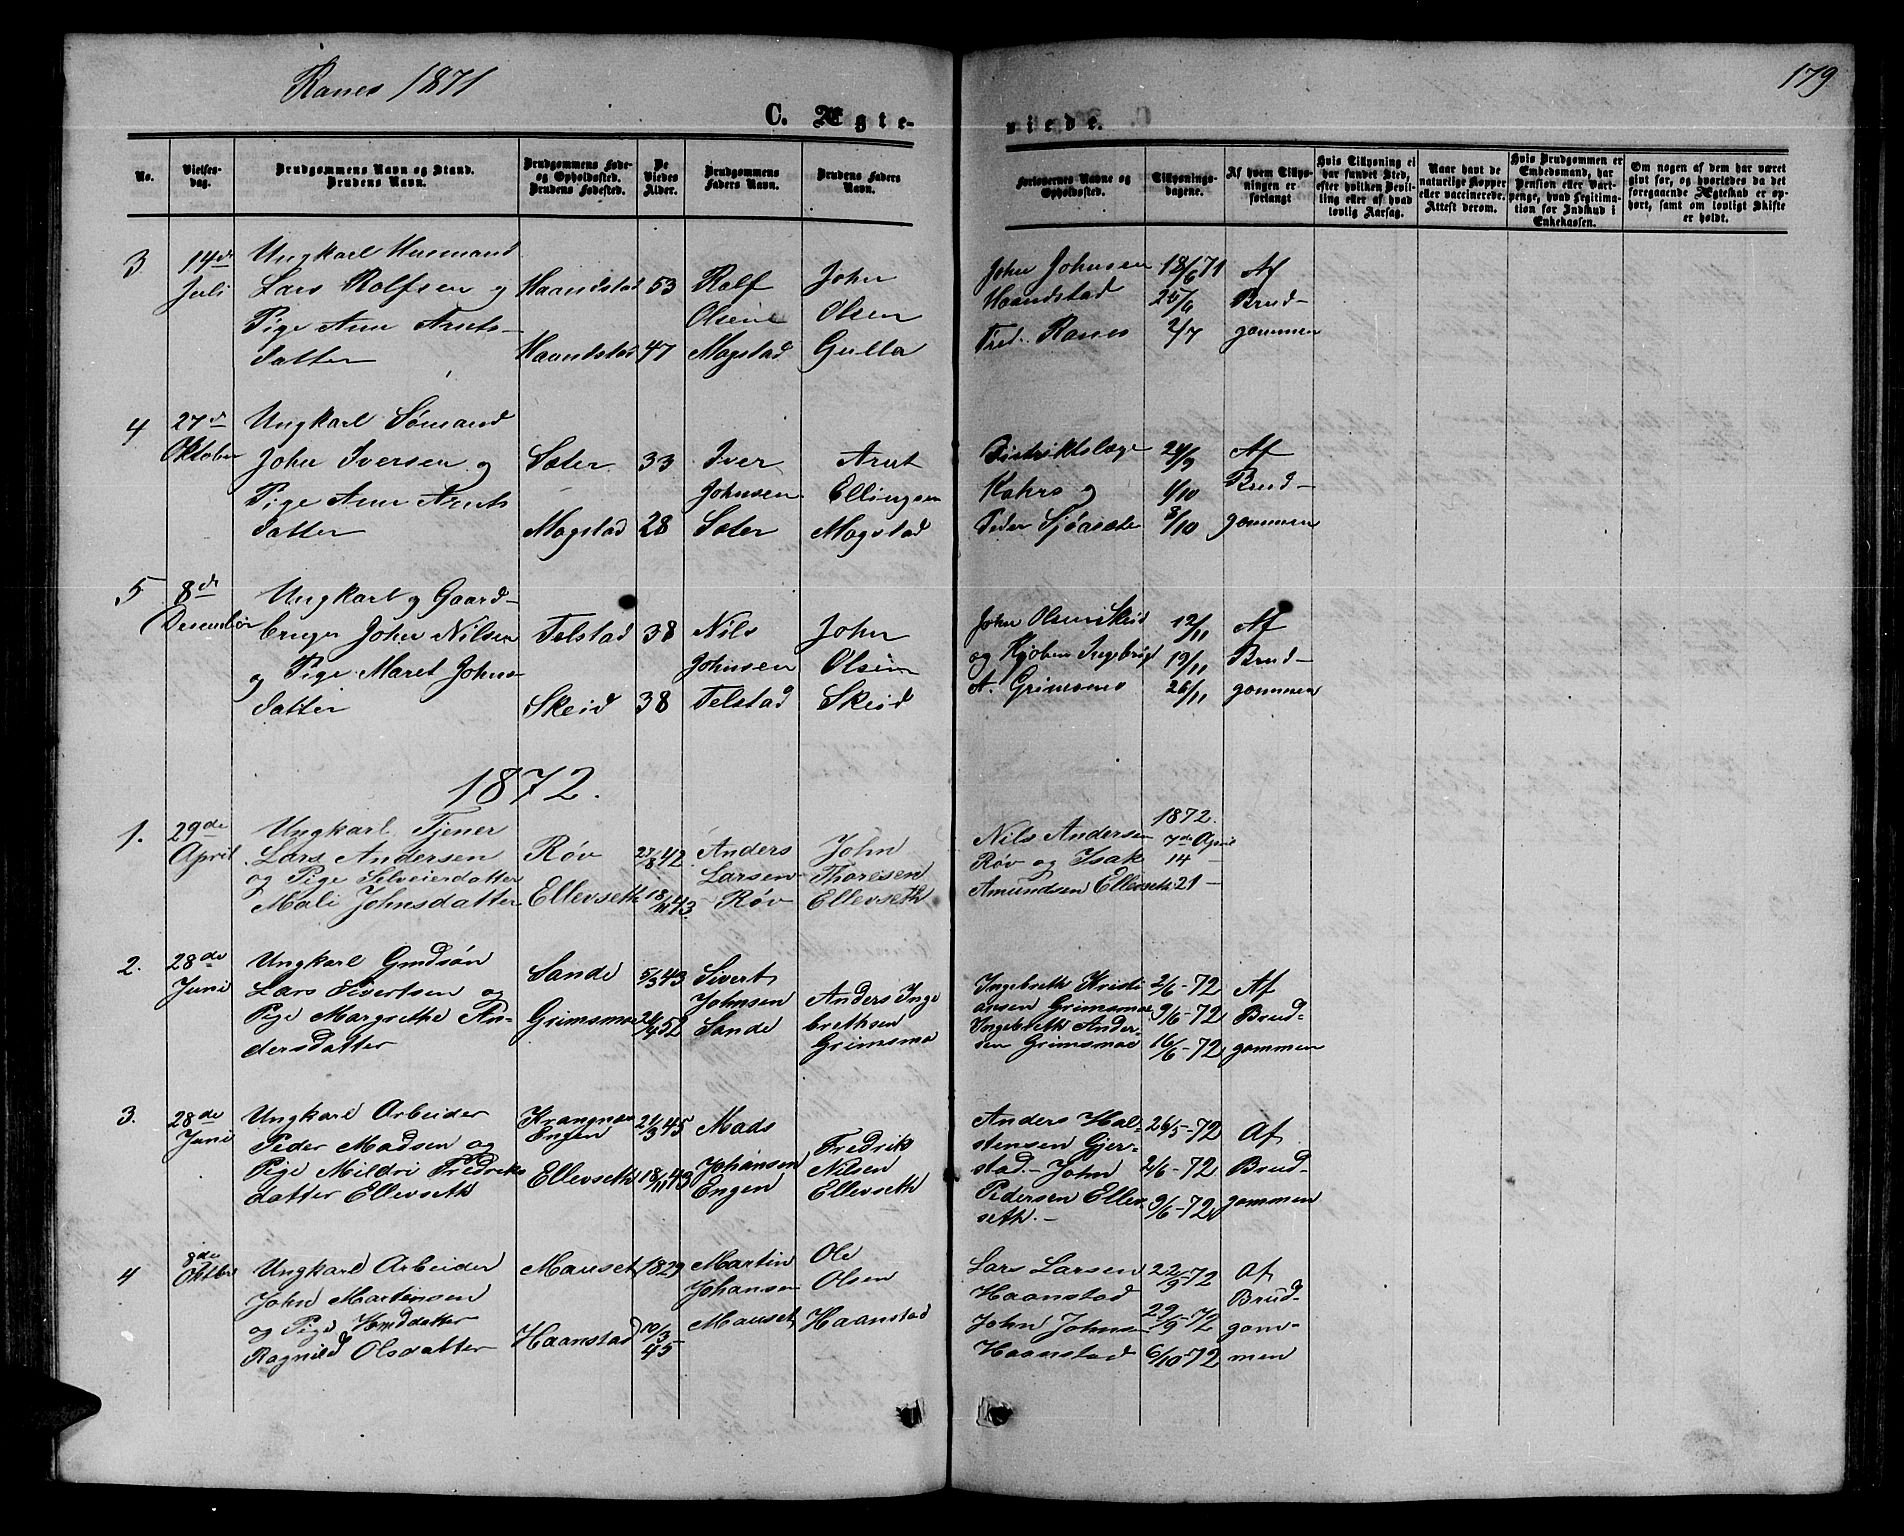 Ranes 1871
179
C. Ægte-
viede.
No.
Vielses-
dag.
Brudgommens Navn og Stand.
Brudens Navn.
Brudgommens Føde-
og Opholdssted.
Brudens Fødested.
De
Viedes
Alder.
Brudgommens
Faders Navn.
Brudens Faders
Navn.
Forlovernes Navne og
Opholdssted.
Tillysnings-
dagene.
Af hvem Tillys-
ningen er
forlangt
Hvis Tillysning ei
har fundet Sted,
efter hvilken Bevil-
ling eller af hvad
lovlig Aarsag.
Naar havt de
naturlige Kopper
eller vaccinerede.
Attest derom.
Hvis Brudgommen er
Embedsmand, har
Pension eller Vart-
penge, hvad Legitima-
tion for Indskud i
Enkekassen.
Om nogen af dem har været
gift før, og hvorledes da det
foregaaende Ægteskab er op-
hørt, samt om lovligt Skifte
er holdt.
3
14de
Juli
Ungkarl Husmand
Lars Rolfsen og
Pige Ane Arnts-
datter
Haandstad
Haandstad
53
47
Rolf
Olsen
Magstad
John
Olsen
Gulla
John Johnsen
Haandstad
Fred. Ranes
18/6 71
25/6
2/7
Af
Brud-
gommen
4
27de
Oktober
Ungkarl Sømand
John Iversen og
Pige Ane Arnts
datter
Sæter
Magstad
33
28
Iver
Johnsen
Sæter
Arnt
Ellingsen
Magstad
Distriktslæge
Kahrs og
Peder Sjøasæter
24/9
1/10
8/10
Af
Brud-
gommen
5
8de
December
Ungkarl og Gaard-
bruger John Nilsen
og Pige Maret Johns-
datter
Telstad
Skeid
38
38
Nils
Johnsen
Telstad
John
Olsen
Skeid
John Olsen Skeid
og Kjøbm Ingebrigt
A. Grimsmo
12/11
19/11
26/11
Af
Brud-
gommen
1872.
1.
29de
April
Ungkarl Tjener
Lars Andersen
og Pige Selveierdatter
Mali Johnsdatter
Røv
Ellevseth
27/8 42
18/11 43
Anders
Larsen
Røv
John
Thoresen
Ellevseth
Nils Andersen
Røv og Isak
Amundsen Ellevseth
1872.
7de April
14 -
21 -
2.
28de
Juni
Ungkarl Grdsøn
Lars Sivertsen og
Pige Margrethe An-
dersdatter
Sande
Grimsmoe
5/3 43
24/4 52
Sivert
Johnsen
Sande
Anders Inge
brethsen
Grimsmo
Ingebreth Kristi
ansen Grimsmoe
Ingebreth Ander-
sen Grimsmoe
2/6-72
9/6-72
16/6-72
Af
Brud-
gommen
3.
28de
Juni
Ungkarl Arbeider
Peder Madsen og
Pige Mildri Fredriks
datter Ellevseth
Krangnæs
Engen
Ellevseth
21/3 45
18/11 43
Mads
Johansen
Engen
Fredrik
Nilsen
Ellevseth
Anders Hal-
stensen Gjer-
stad.- John
Pedersen Ellev
seth.-
26/5-72
2/6-72
9/6-72
Af
Brud-
gommen
4
8de
Oktbr
Ungkarl Arbeider
John Martensen
og Pige Hmddatter
Ragnild Olsdatter
Mauset
Haanstad
1829
10/3
45
Martin
Johansen
Mauset
Ole
Olsen
Haanstad
Lars Larsen
Haanstad
John Johns-
Haanstad
22/9-72
29/9-72
6/10-72
Af
Brud-
gom-
men